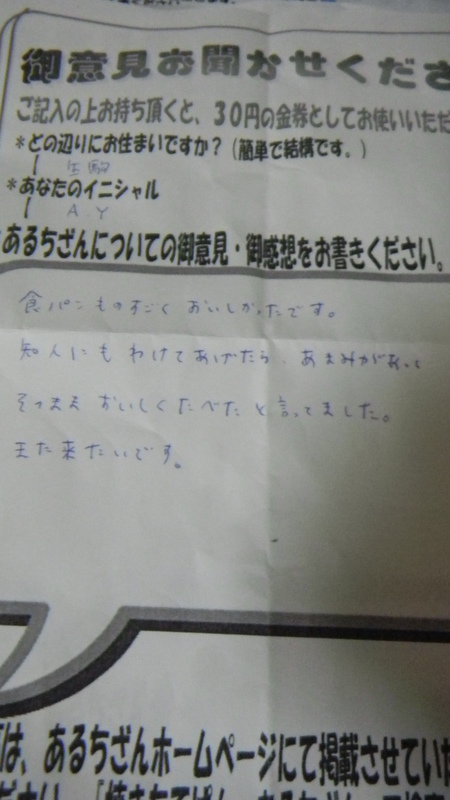 御意見お聞かせくださ
ご記入の上お持ち頂くと、30円の金券としてお使いいただ
*どの辺りにお住まいですか?(簡単で結構です。)
生駒
*あなたのイニシャル
A.Y
あるちざんについての御意見・御感想をお書きください。
食パンものすごくおいしかったです。
知人にもわけてあげたら、あまみがあって
そのままおいしくたべたと言ってました。
また来たいです。
は、あるちざんホームページにて掲載させていた